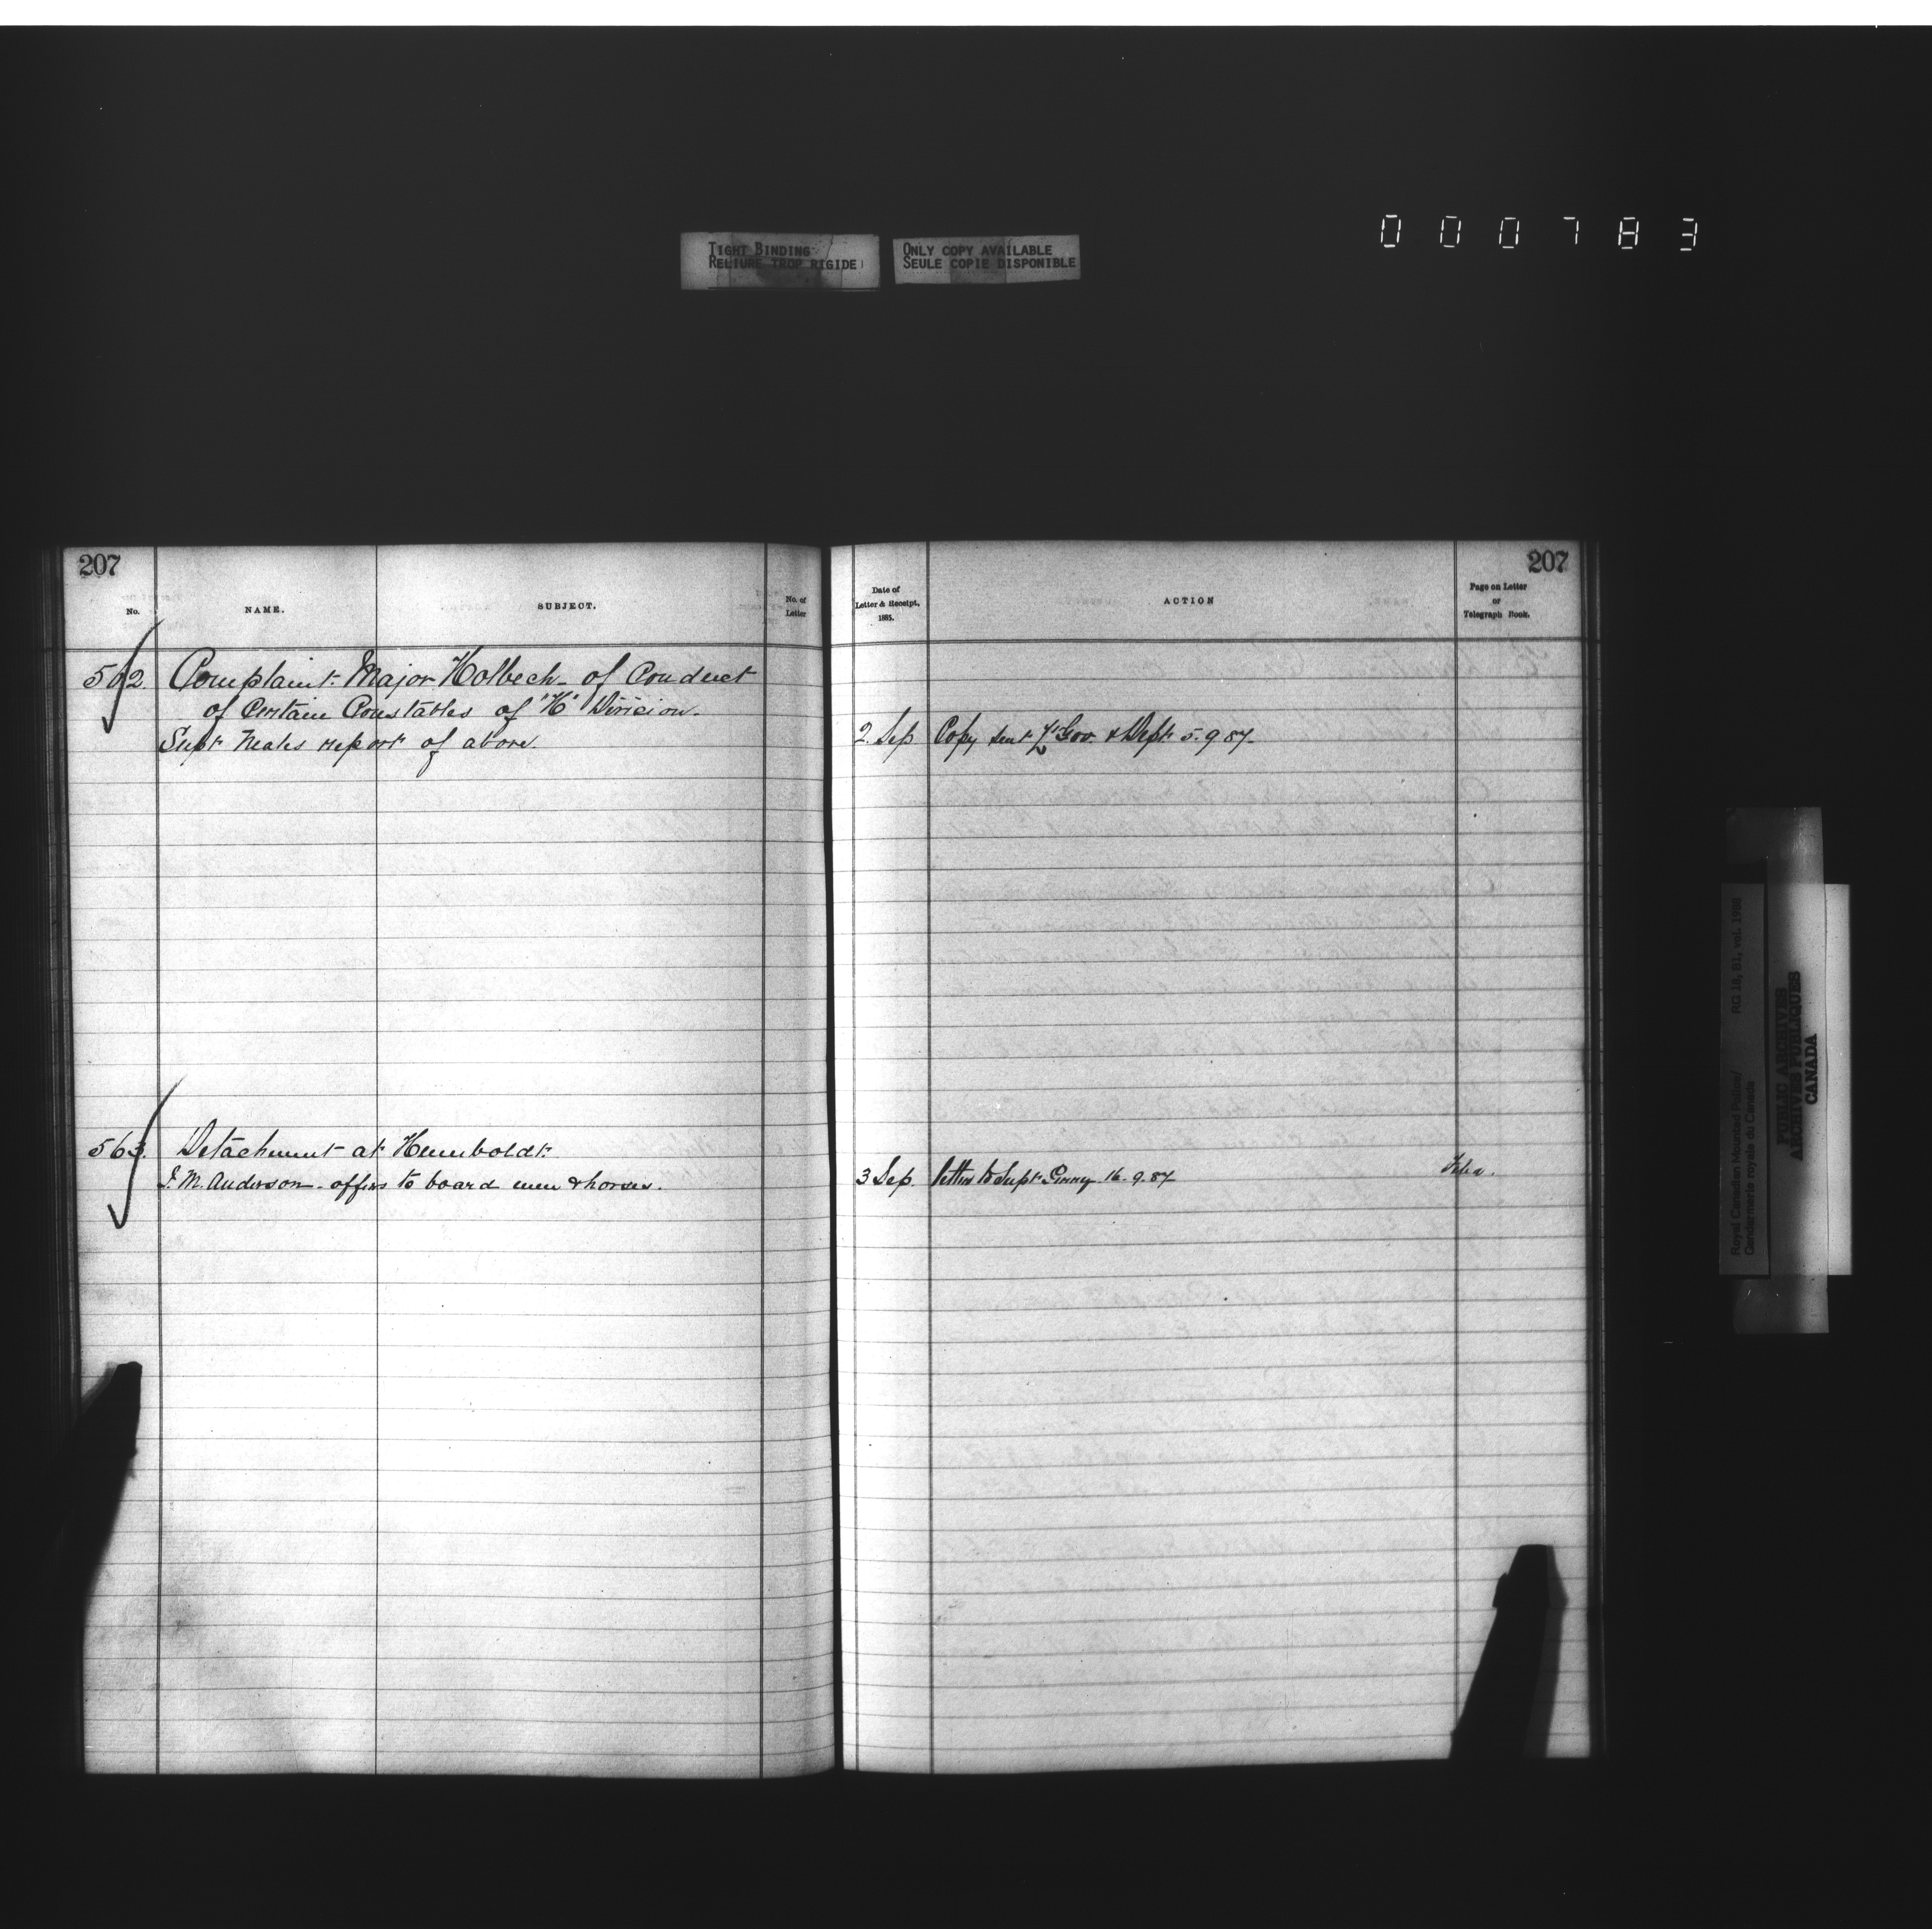 000783
TIGHT BINDING
RELIURE TROP RIGIDE
ONLY COPY AVAILABLE
SEULE COPIE DISPONIBLE
207
No.
NAME.
SUBJECT.
No. of
Letter
562. Complaint. Major Holbech - of Conduct
of Certain Constables of "K" Division.
Supt Neales report of above.
563. Detachment at Humboldt.
J. M. Anderson - offers to board men & horses.
207
Date of
Letter & Receipt,
1885.
ACTION
Page on Letter
or
Telegraph Book.
2. Sep Copy sent Lt Gov. & Dept 5.9.87
3 Sep. Letter to Supt Perry 16.9.87
Royal Canadian Mounted Police/ RG 18, B1, vol. 1988
Gendarmerie royale du Canada
PUBLIC ARCHIVES
ARCHIVES PUBLIQUES
CANADA